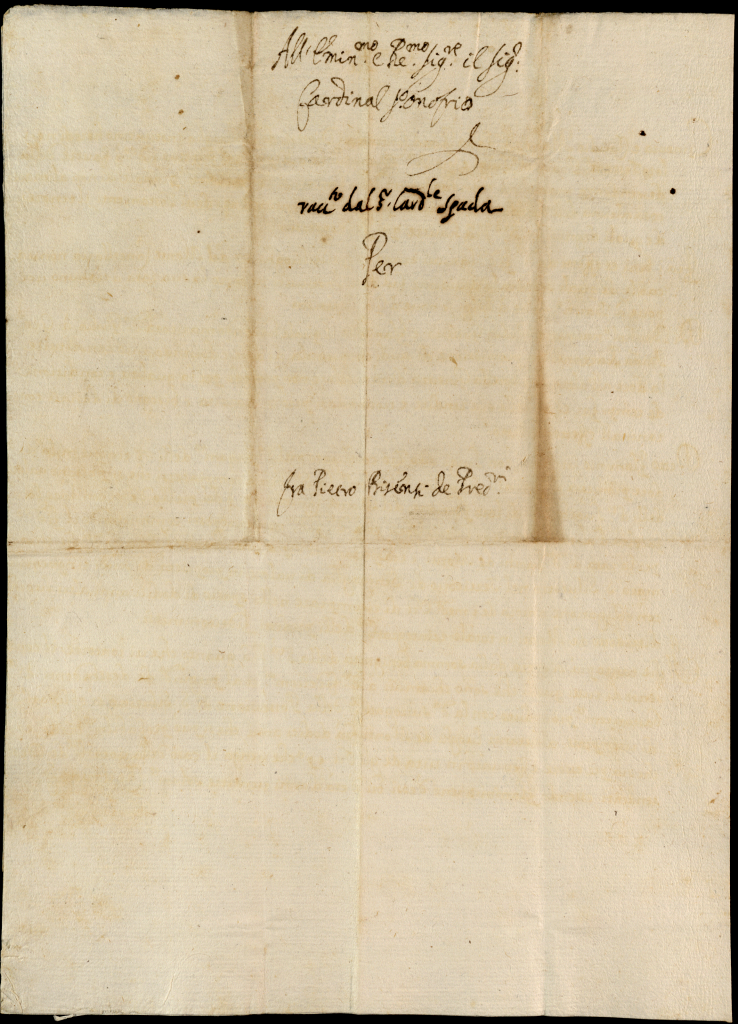 All' Emin.mo e Re.mo sig.re il sig.r
Cardinal S. Onofrio
racc.to dal S.r Card.le Spada
Per
fra Pietro de Pred.ri